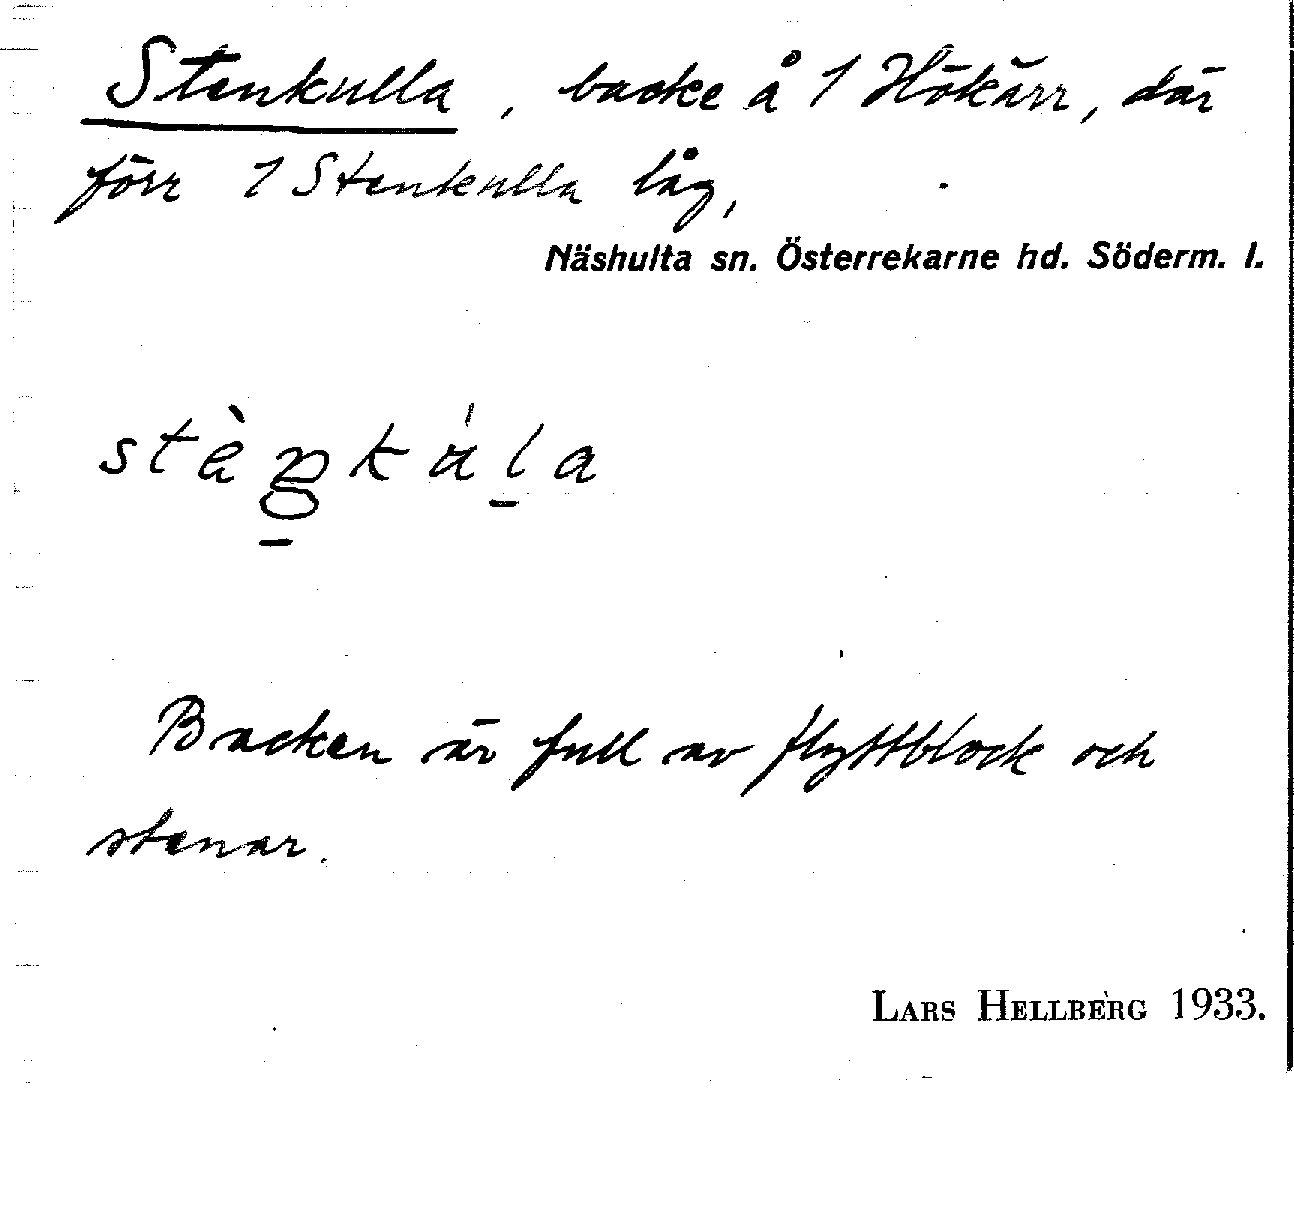 Stenkulla, backe å 1 Hökärr, där
förr 1 Stenkulla låg,
Näshulta sn. Österrekarne hd. Söderm. l.
Backen är full av flyttblock och
stenar.
LARS HELLBERG 1933.